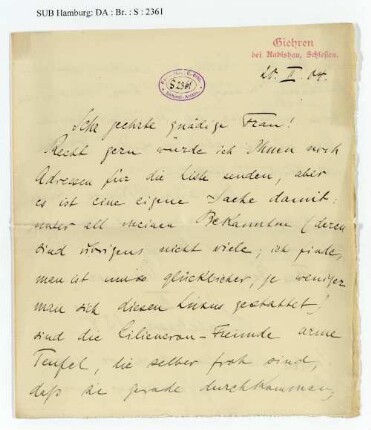 SUB Hamburg: DA : Br. : S : 2361
Giehren
bei Rabishau, Schlesien.
S 2361
20. II. 04.
Sehr geehrte gnädige Frau!
Recht gern würde ich Ihnen noch
Adressen für die Liste senden, aber
es ist eine eigene Sache damit:
unter all meinen Bekannten (deren
sind übrigens nicht viele; ich finde,
man ist umso glücklicher, je weniger
man sich diesen Luxus gestattet)
sind die Liliencron-Freunde arme
Teufel, die selber froh sind,
daß sie gerade durchkommen,